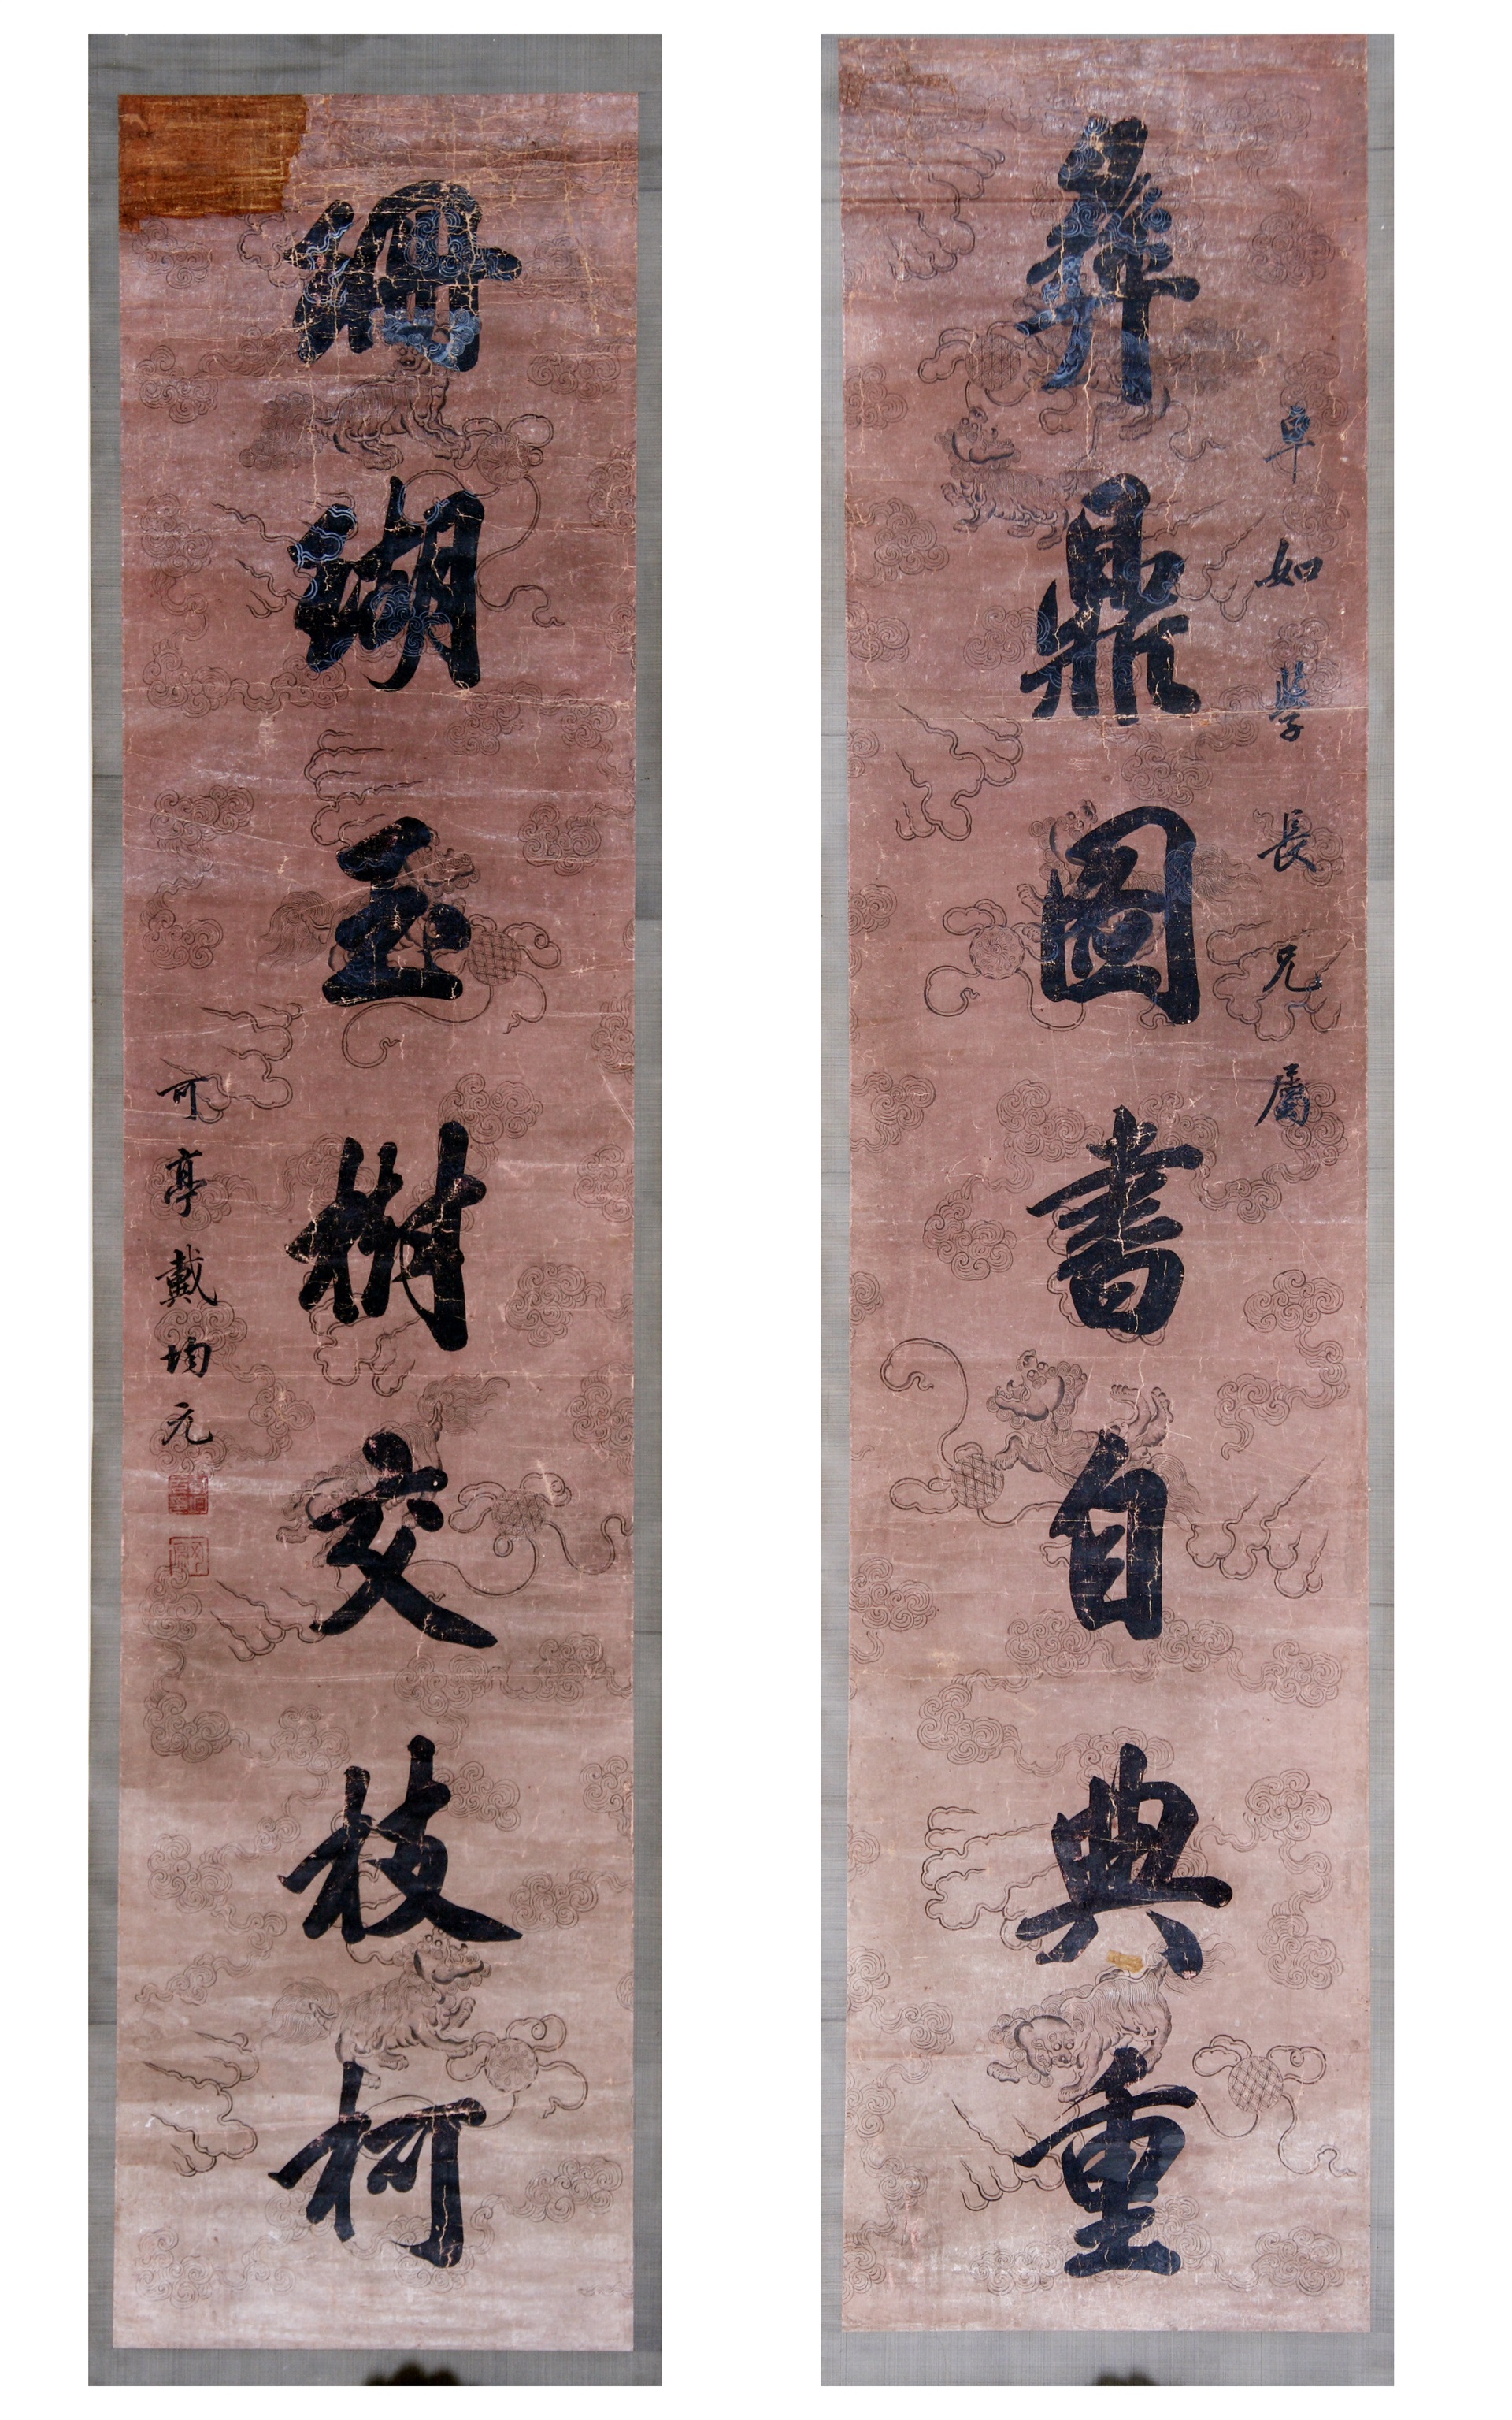 卓如學長兄屬
彝鼎圖書自典重
珊瑚玉樹交枝柯
可亭戴均元